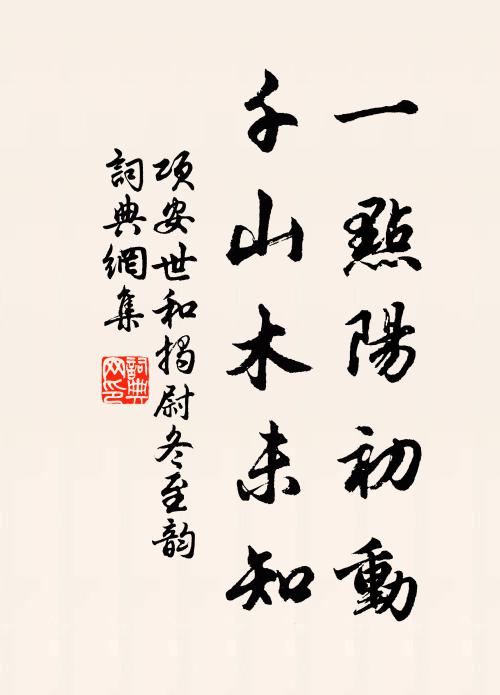 一點陽初動
千山木未知
項安世和揭尉冬至韵
詞典網集
詞典網印